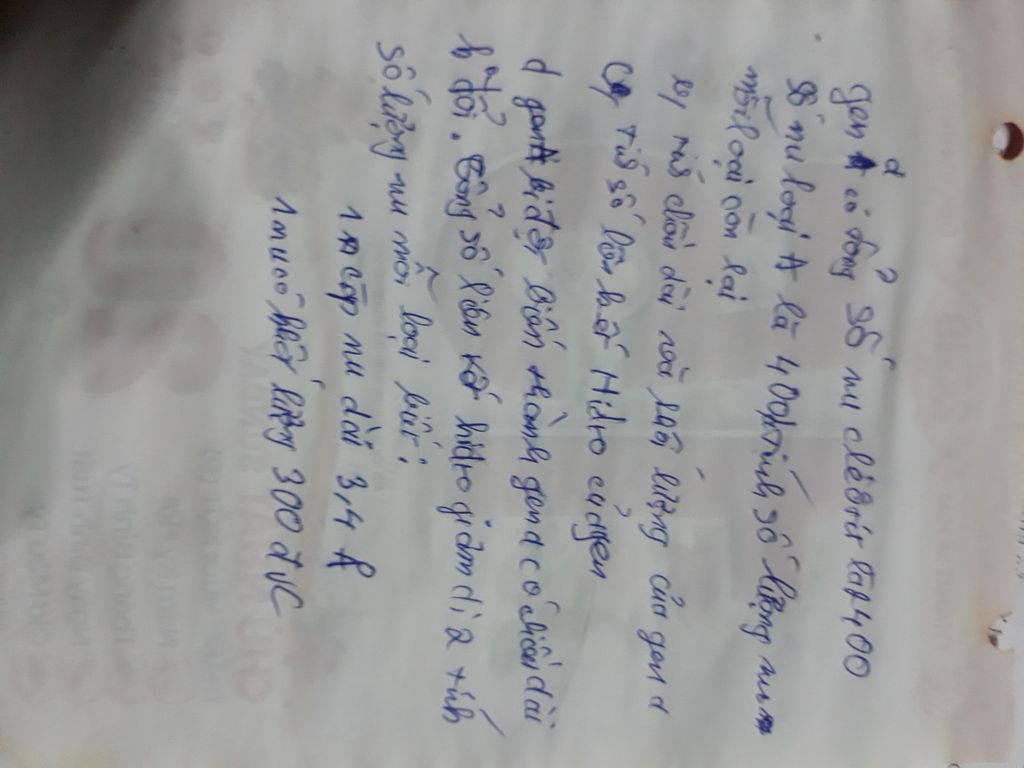 gen d có tổng số nu
số nu loại A là 400 tính số lượng nu
mỗi loại còn lại
b, tính chiều dài và khối lượng của gen d
c, tính số liên kết Hidro của gen
d gen A bị đột biến thành gen a có chiều dài
k đổi. tổng số liên kết hidro giảm đi 2 tính
số lượng nu mỗi loại biết:
1 cặp nu dài 3,4 A
1 nu có khối lượng 300 đvC